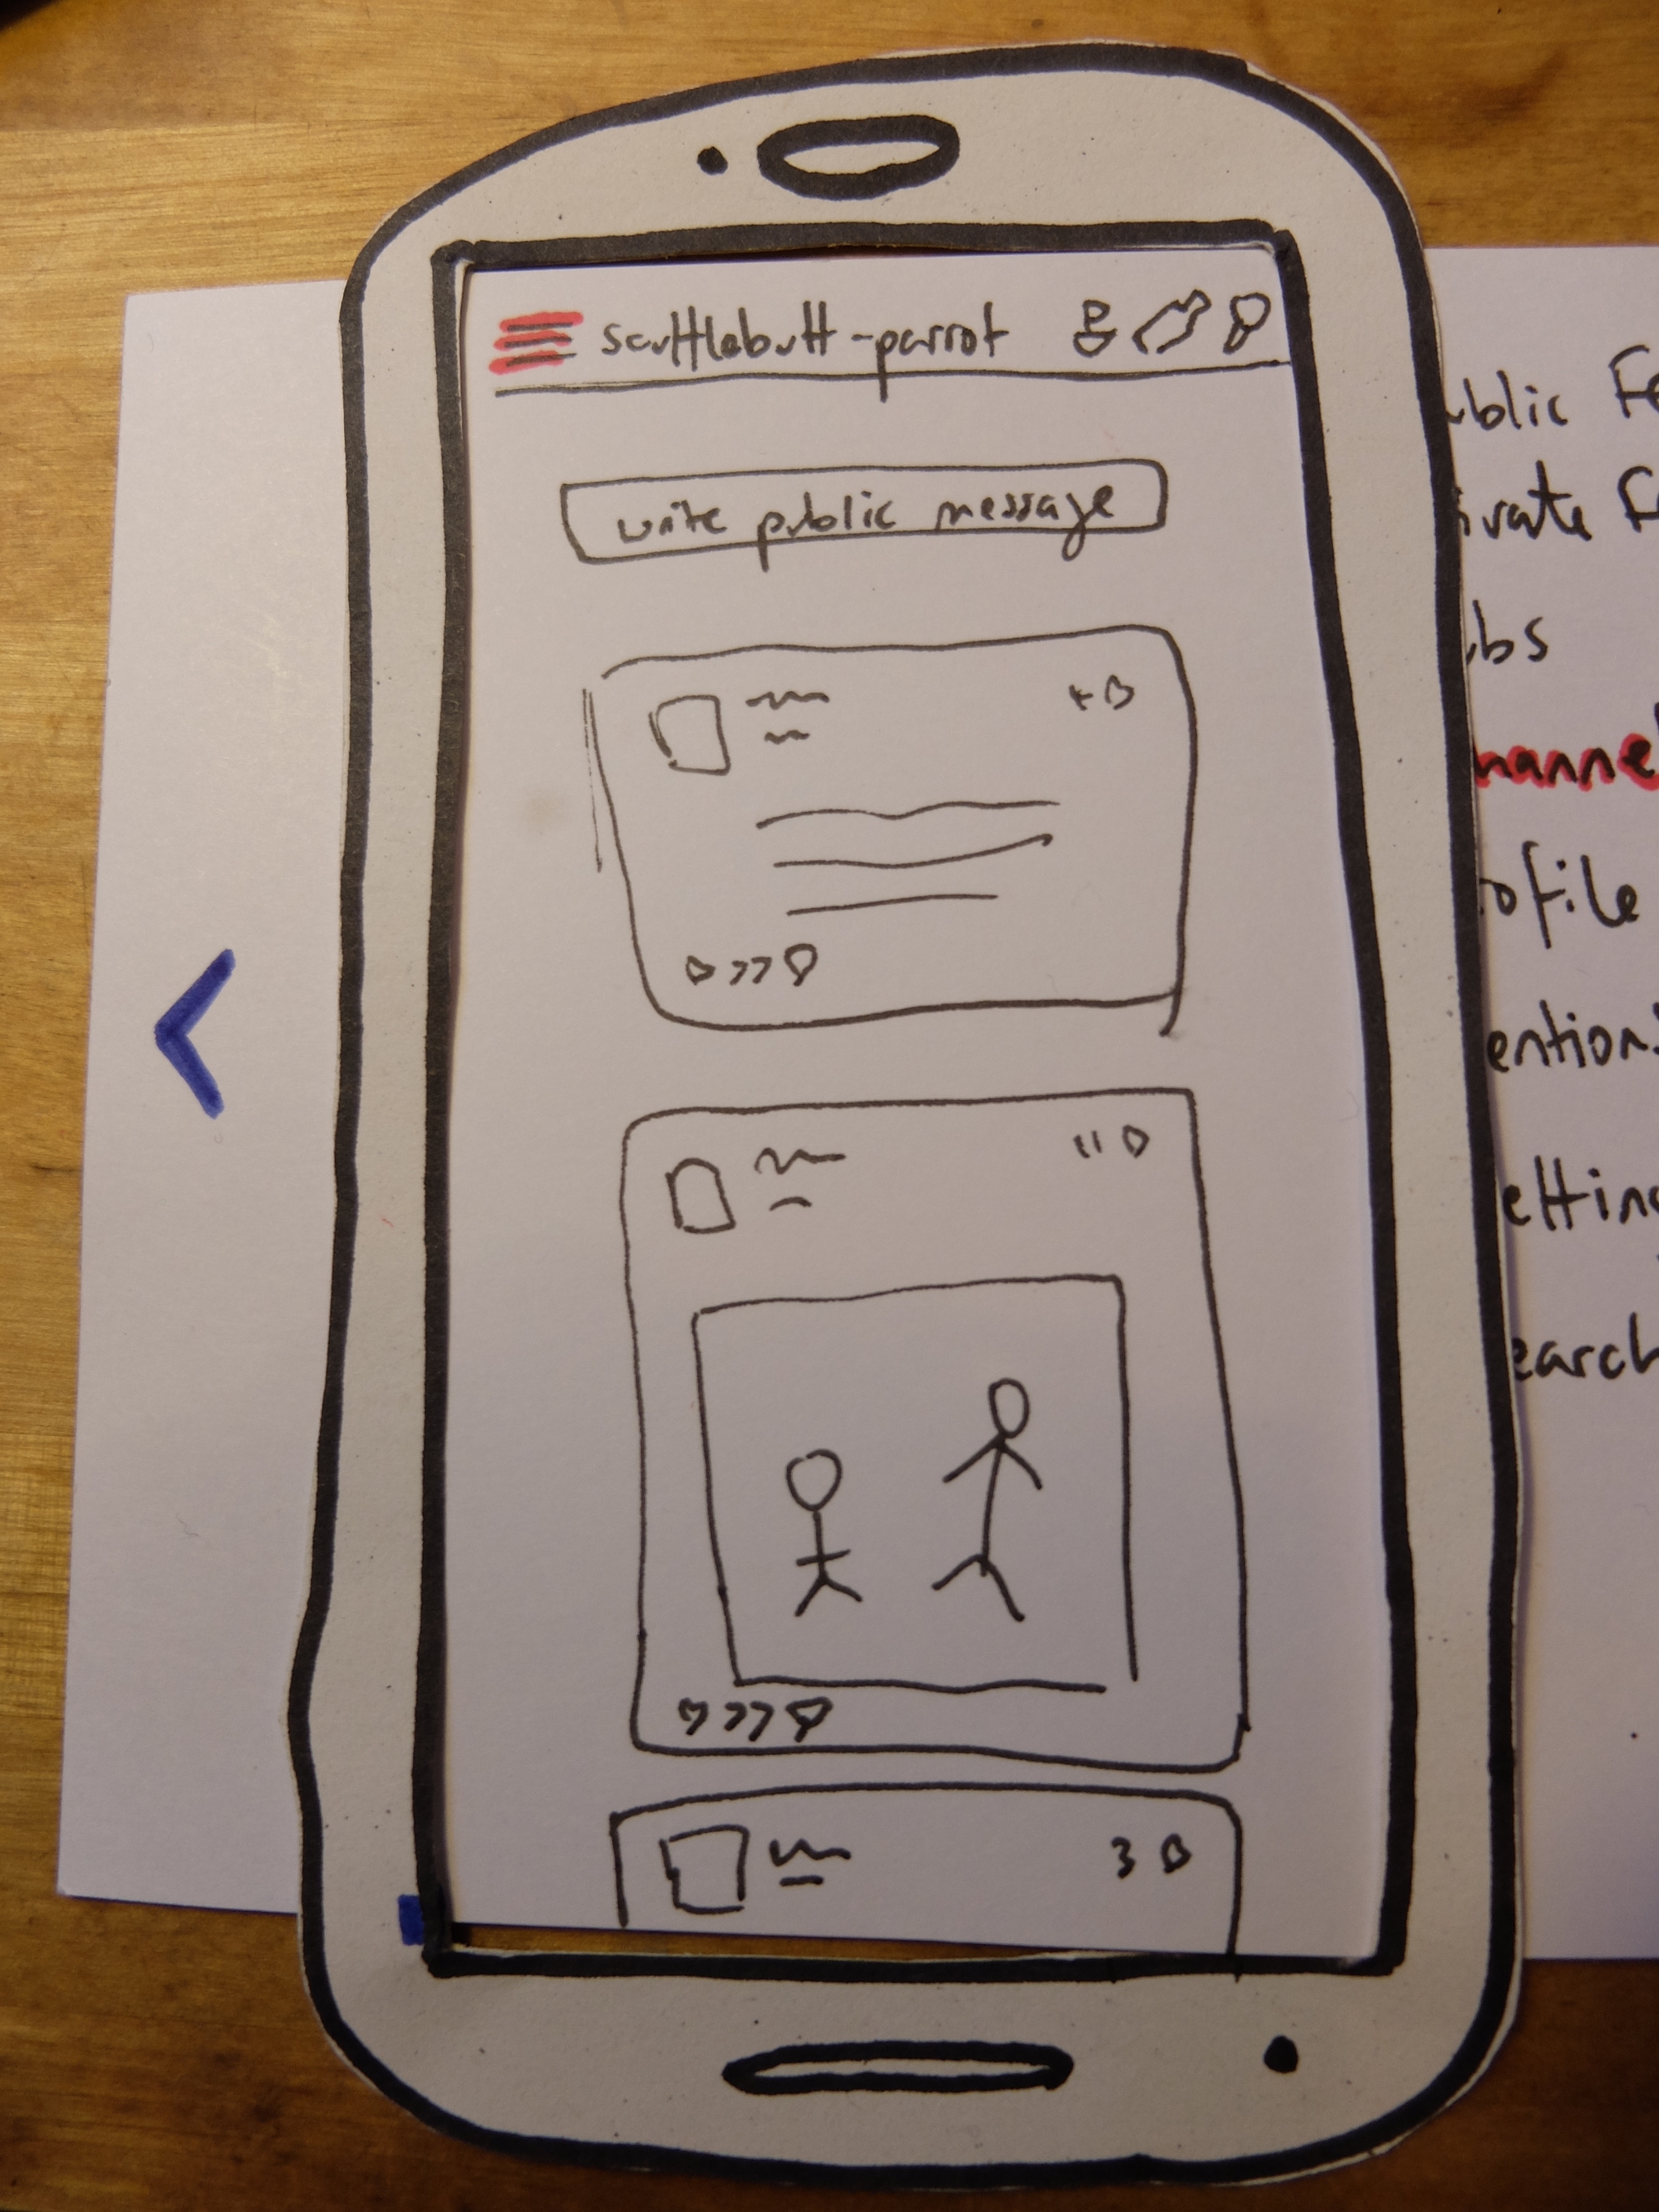 scuttlebutt-parrot
write public message
3
ublic Fe
ivate Fe
ubs
hannel
ofile
entions
etting
earch